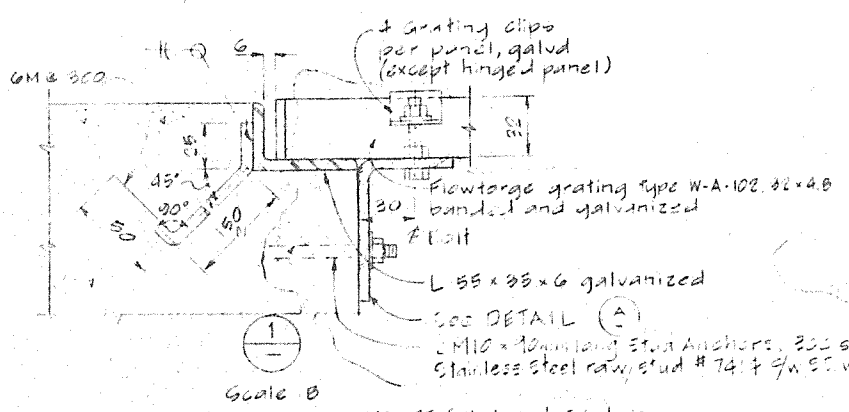 4 Grating clips
per panel, galvd
(except hinged panel)
6
6M @ 300
25
32
45°
90°
50
50
30
Flowforge grating Type W-A-102, 32 x 4.8
banded and galvanized
Bolt
L 55 x 35 x 6 galvanized
See DETAIL A
M10 x 90mm long Stud Anchors,
Stainless Steel raw stud # 7414 c/w
1
Scale B